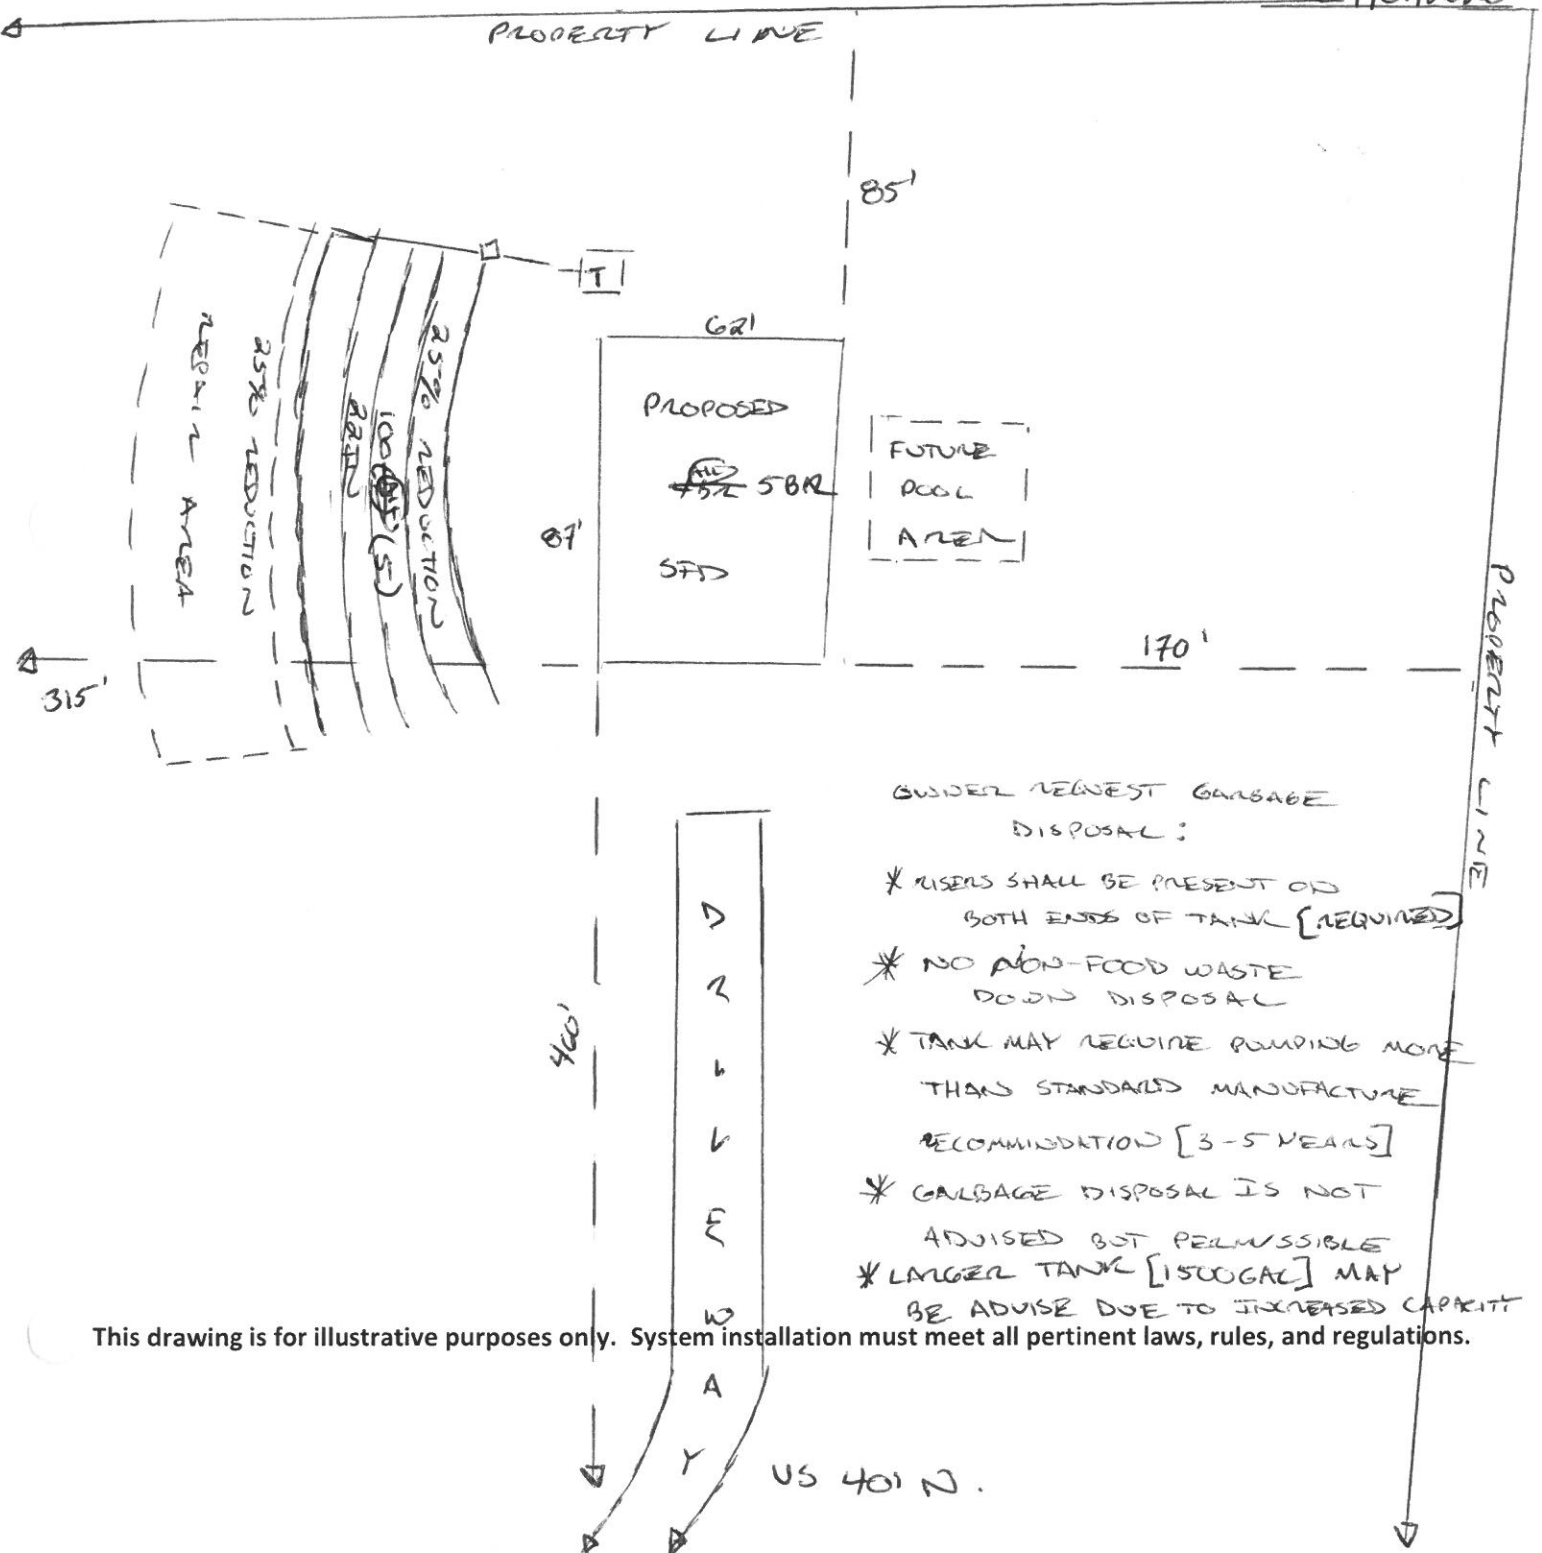 PROPERTY LINE
85'
T
62'
PROPOSED
5 BR
SFD
87'
FUTURE
POOL
AREA
25% REDUCTION
100' (5)
22IN
25% REDUCTION
REPAIR AREA
315'
170'
PROPERTY LINE
OWNER REQUEST GARBAGE
DISPOSAL:
* RISERS SHALL BE PRESENT ON
BOTH ENDS OF TANK [REQUIRED]
* NO NON-FOOD WASTE
DOWN DISPOSAL
* TANK MAY REQUIRE PUMPING MORE
THAN STANDARD MANUFACTURE
RECOMMINDATION [3-5 YEARS]
* GARBAGE DISPOSAL IS NOT
ADVISED BUT PERMISSIBLE
* LARGER TANK [1500GAL] MAY
BE ADVISE DUE TO INCREASED CAPACITY
460'
DRIVEWAY
This drawing is for illustrative purposes only. System installation must meet all pertinent laws, rules, and regulations.
US 401 N.